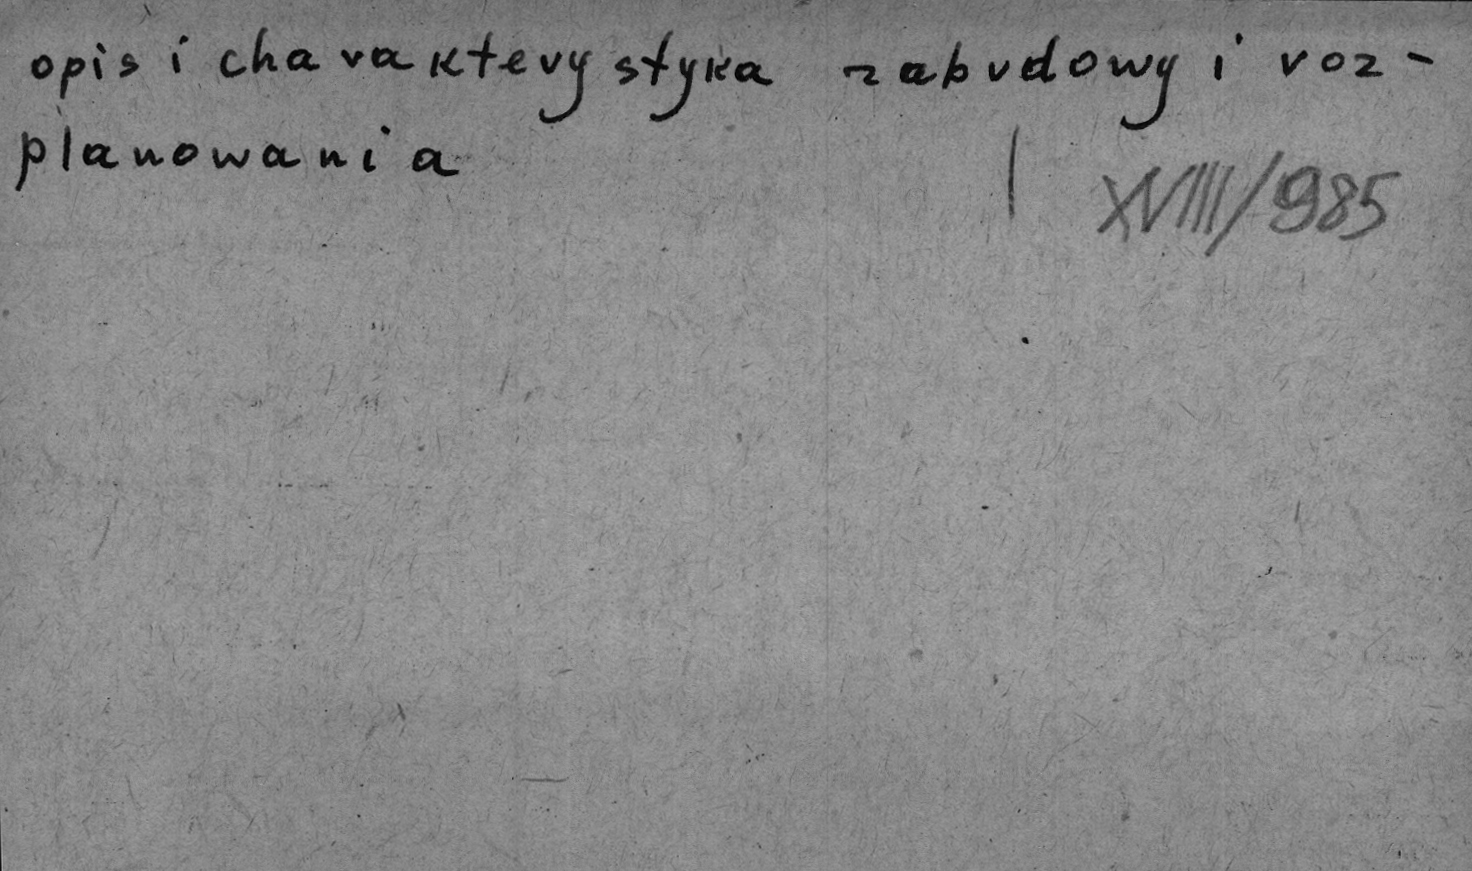 opis i charakterystyka zabudowy i roz-
planowania
XVIII/985